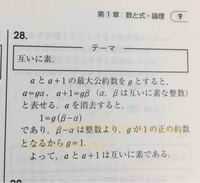 第1章 数と式・論理 9
28.
テーマ
互いに素.
aとa+1の最大公約数をgとすると,
a=gα, a+1=gβ (α, βは互いに素な整数)
と表せる. aを消去すると,
1=g(β-α)
であり, β-αは整数より, gが1の正の約数
となるからg=1.
よって, aとa+1は互いに素である.